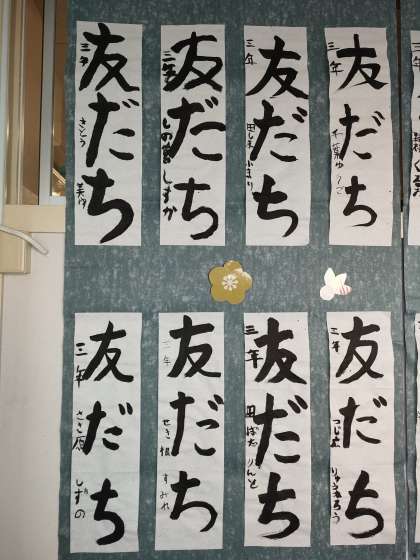 友だち
三年
友だち
三年
友だち
三年 しずか
友だち
三年 さとう
友だち
三年 りゅうたろう
友だち
三年 田ばた りんと
友だち
三年 せき根 すみれ
友だち
三年 ささ原 しずの